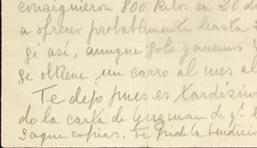 consiguieron 800. Kilos en 20 d
a ofrecer probablemente hasta
gi así, aunque solo ganemos
se obtiene un carro al mes al
Te dejo pues es tardísim
do la carta de Guzman de
saque copias. Te pide la bendicio